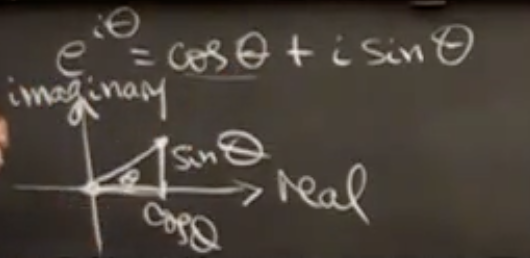 e^{iθ} = cos θ + i sin θ
imaginary
sin θ
θ
real
cos θ